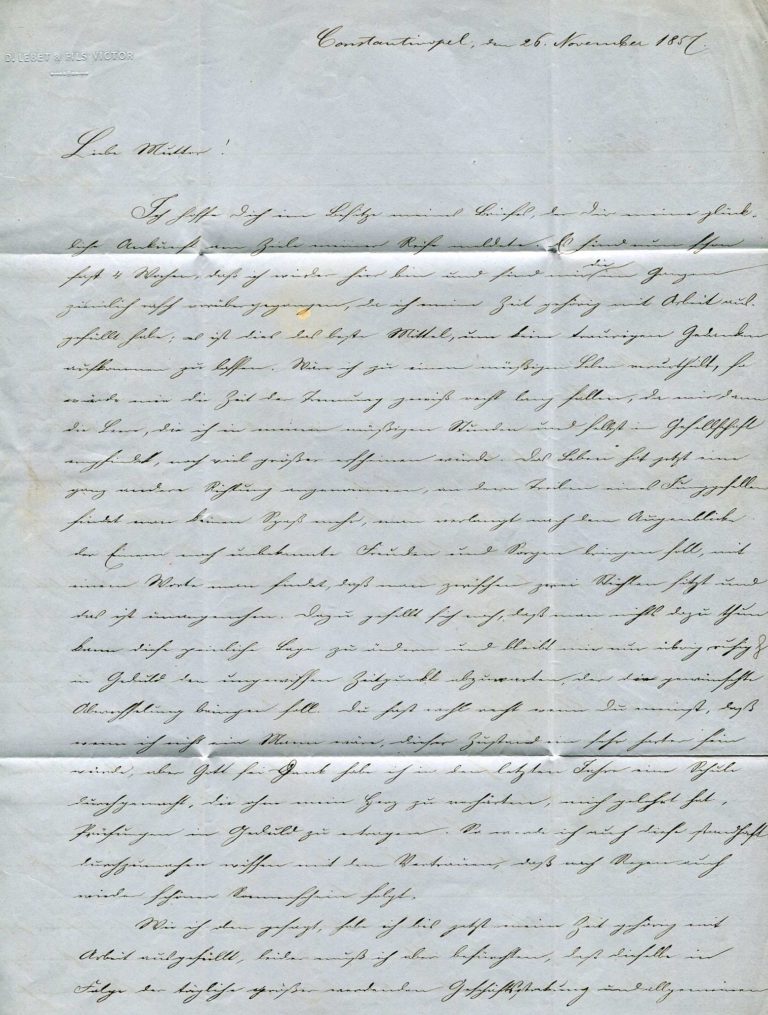 D. LEBET & FILS VICTOR
Constantinopel, den 26. November 1857.
Liebe Mutter!
Ich hoffe Dich im Besitze meines Briefes, der Dir meine glück-
liche Ankunft am Ziele meiner Reise meldete. Es sind nun schon
fast 4 Wochen, daß ich wieder hier bin und sind mir die im Ganzen
ziemlich rasch vorübergegangen, da ich meine Zeit gehörig mit Arbeit aus-
gefüllt habe; es ist dies das beste Mittel, um keine traurigen Gedanken
aufkommen zu lassen. Wär ich zu einem müßigen Leben verurtheilt, so
würde mir die Zeit der Trennung gewiß recht lang fallen, da mir dann
die Leere, die ich in meinen müßigen Stunden und selbst in Gesellschaft
empfindet, noch viel größer erscheinen würde. Das Leben hat jetzt eine
ganz andere Richtung angenommen, an dem Treiben eines Junggesellen
findet man keinen Spaß mehr, man verlangt nach dem Augenblicke
der Einem noch unbekannte Freuden und Sorgen bringen soll, mit
einem Worte man findet, daß man zwischen zwei Stühlen sitzt und
das ist unangenehm. Dazu gesellt sich noch, daß man nichts dazu thun
kann diese peinliche Lage zu ändern und bleibt mir nur übrig ruhig &
in Geduld den ungewissen Zeitpunkt abzuwarten, der die gewünschte
Abwechselung bringen soll. Du hast wohl recht wenn Du meinst, daß
wenn ich nicht ein Mann wäre, dieser Zustand ein sehr harter sein
würde, aber Gott sei Dank habe ich in den letzten Jahren eine Schule
durchgemacht, die ohne mein Herz zu verhärten, mich gelehrt hat,
Prüfungen in Geduld zu ertragen. So werde ich auch diese standhaft
durchzumachen wissen mit dem Vertrauen, daß nach Regen auch
wieder schöner Sonnenschein folgt.
Wie ich dem gesagt, habe ich bis jetzt meine Zeit gehörig mit
Arbeit ausgefüllt, leider muß ich aber befürchten, daß dieselbe in
Folge der täglich größer werdenden Geschäftsstockung und allgemeinen